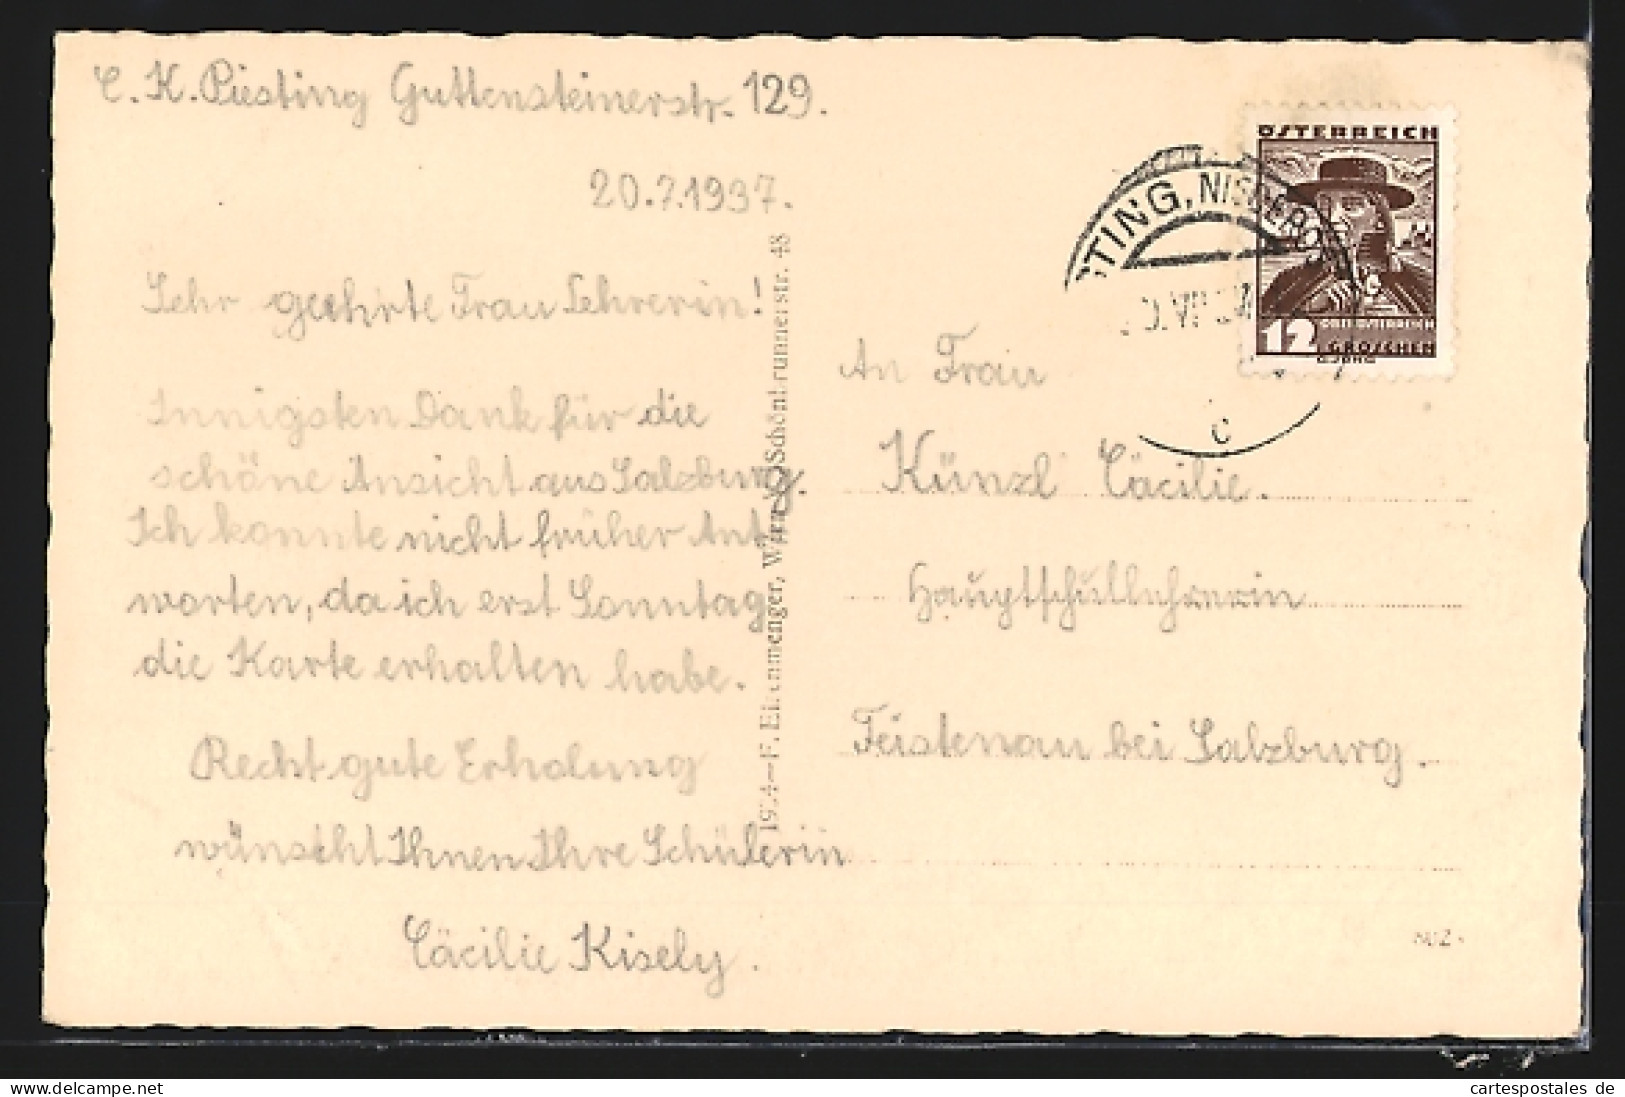 C. K. Piesting Guttensteinerstr. 129.
20.7.1937.
Sehr geehrte Frau Lehrerin!
Innigsten Dank für die
schöne Ansicht aus Salzburg.
Ich konnte nicht früher Ant
worten, da ich erst Sonntag
die Karte erhalten habe.
Recht gute Erholung
wünscht Ihnen Ihre Schülerin
Cäcilie Kisely.
F. Eisenmenger, Wien, Schönbrunnerstr. 48
ÖSTERREICH
12
OBERÖSTERREICH
GROSCHEN
STING, NIEDERÖ
C
An Frau
Künzl Cäcilie.
Hauptschullehrerin
Feistenau bei Salzburg.
cartespostales de